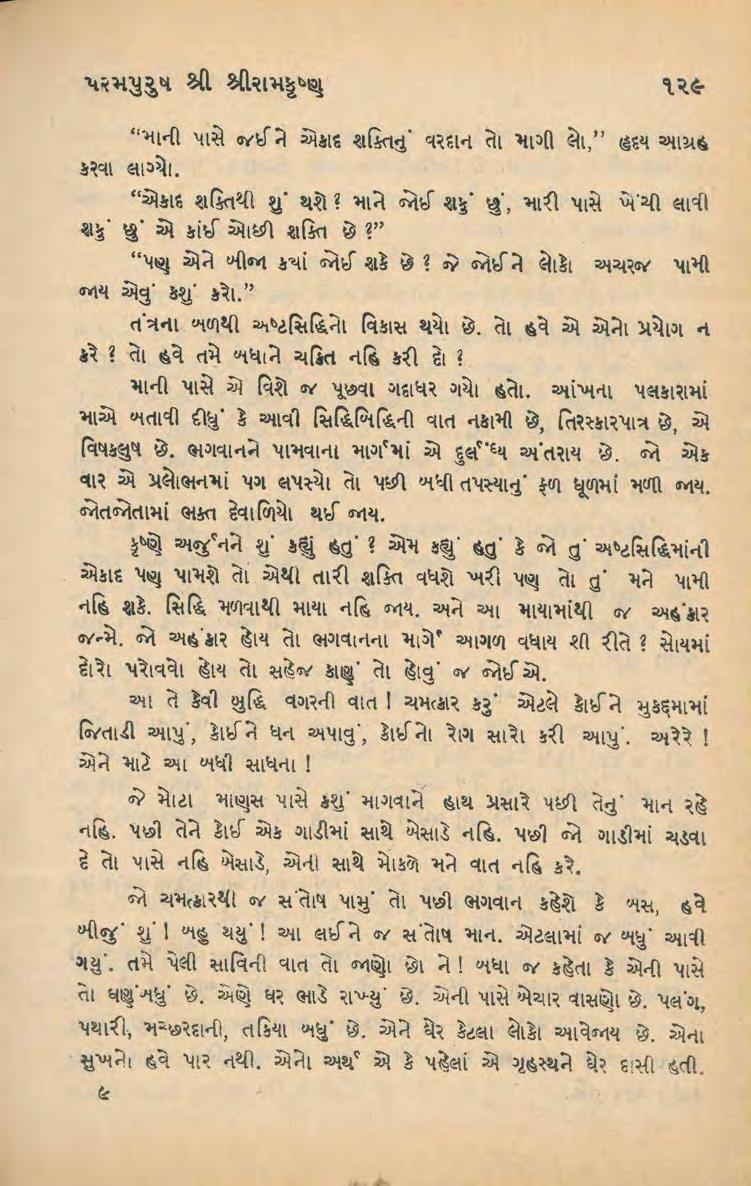 પરમપુરુષ શ્રી શ્રીરામકૃષ્ણ ૧૨૯
“માની પાસે જઈને એકાદ શક્તિનું વરદાન તો માગી લો,” હૃદય આગ્રહ
કરવા લાગ્યો.
“એકાદ શક્તિથી શું થશે? માને જોઈ શકું છું, મારી પાસે ખેંચી લાવી
શકું છું એ કાંઈ ઓછી શક્તિ છે?”
“પણ એને બીજા ક્યાં જોઈ શકે છે? જે જોઈને લોકો અચરજ પામી
જાય એવું કશું કરો.”
તંત્રના બળથી અષ્ટસિદ્ધિનો વિકાસ થયો છે. તો હવે એ એનો પ્રયોગ ન
કરે? તો હવે તમે બધાને ચકિત નહિ કરી દો?
માની પાસે એ વિશે જ પૂછવા ગદાધર ગયો હતો. આંખના પલકારામાં
માએ બતાવી દીધું કે આવી સિદ્ધિબિદ્ધિની વાત નકામી છે, તિરસ્કારપાત્ર છે, એ
વિષકલુષ છે. ભગવાનને પામવાના માર્ગમાં એ દુર્લંઘ્ય અંતરાય છે. જો એક
વાર એ પ્રલોભનમાં પગ લપસ્યો તો પછી બધી તપસ્યાનું ફળ ધૂળમાં મળી જાય.
જોતજોતામાં ભક્ત દેવાળિયો થઈ જાય.
કૃષ્ણે અર્જુનને શું કહ્યું હતું? એમ કહ્યું હતું કે જો તું અષ્ટસિદ્ધિમાંની
એકાદ પણ પામશે તો એથી તારી શક્તિ વધશે ખરી પણ તો તું મને પામી
નહિ શકે. સિદ્ધિ મળવાથી માયા નહિ જાય. અને આ માયામાંથી જ અહંકાર
જન્મે. જો અહંકાર હોય તો ભગવાનના માર્ગે આગળ વધાય શી રીતે? સોયમાં
દોરો પરોવવો હોય તો સહેજ કાણું તો હોવું જ જોઈએ.
આ તે કેવી બુદ્ધિ વગરની વાત! ચમત્કાર કરું એટલે કોઈને મુકદ્દમામાં
જિતાડી આપું, કોઈને ધન અપાવું, કોઈનો રોગ સારો કરી આપું. અરેરે!
એને માટે આ બધી સાધના!
જે મોટા માણુસ પાસે કશું માગવાને હાથ પ્રસારે પછી તેનું માન રહે
નહિ. પછી તેને કોઈ એક ગાડીમાં સાથે બેસાડે નહિ. પછી જો ગાડીમાં ચડવા
દે તો પાસે નહિ બેસાડે, એની સાથે મોકળે મને વાત નહિ કરે.
જો ચમત્કારથી જ સંતોષ પામું તો પછી ભગવાન કહેશે કે બસ, હવે
બીજું શું! બહુ થયું! આ લઈને જ સંતોષ માન. એટલામાં જ બધું આવી
ગયું. તમે પેલી સાવિની વાત તો જાણો છો ને! બધા જ કહેતા કે એની પાસે
તો ઘણુંબધું છે. એણે ઘર ભાડે રાખ્યું છે. એની પાસે બેચાર વાસણો છે. પલંગ,
પથારી, મચ્છરદાની, તકિયા બધું છે. એને ઘેર કેટલા લોકો આવેજાય છે. એના
સુખનો હવે પાર નથી. એનો અર્થ એ કે પહેલાં એ ગૃહસ્થને ઘેર દાસી હતી.
૯